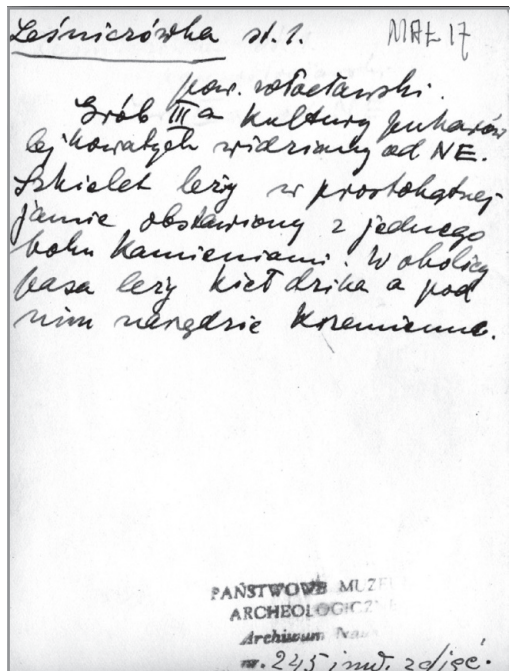 Leśniczówka st. 1. MAŁ 17
pow. włocławski.
Grób III a kultury pucharów
lejkowatych widziany od NE.
Szkielet leży w prostokątnej
jamie obstawiony z jednego
boku kamieniami. W okolicy
pasa leży kieł dzika a pod
nim narzędzie krzemienne.
PAŃSTWOWE MUZE
ARCHEOLOGICZNE
Archiwum Nauk
nr. 245 inw. zdjęć.